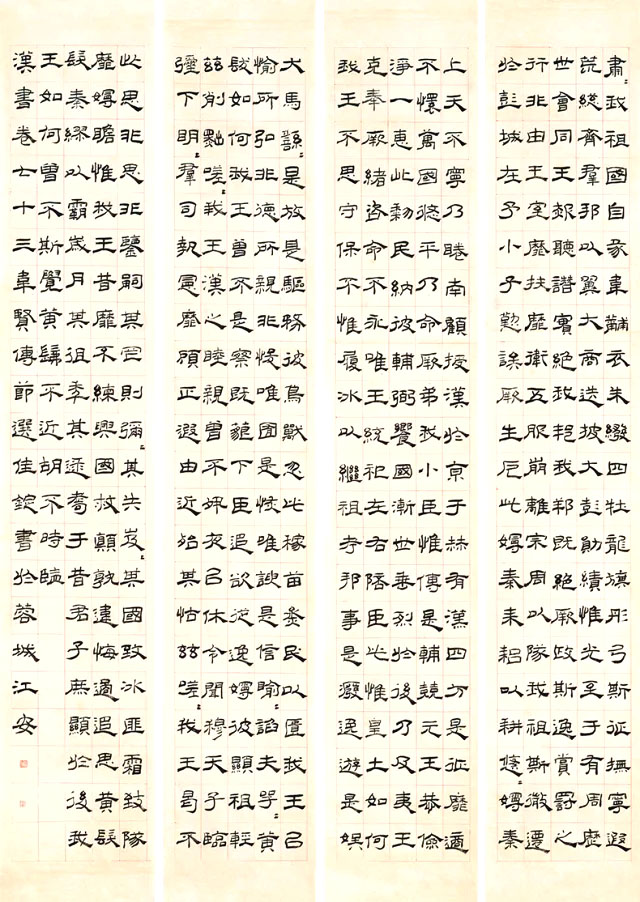 肅〻我祖國自豕韋黼衣朱綴四牡龍旗彤弓斯征撫寧遐
荒總齊羣邦以翼大商迭披大彭勳績惟光至于有周歷
世會同王赧聽譖實絕我邦我邦既絕厥政斯逸賞罰之
行非由王室靡扶靡衛五服崩離宗周以隊我祖斯微遷
於彭城在予小子勤誒厥生阨此嫚秦耒耜以耕悠〻嫚秦
上天不寧乃眷南顧授漢於京于赫有漢四方是征靡適
不懷萬國攸平乃命厥弟我小臣惟傅是輔兢元王恭儉
淨一惠此黎民納彼輔弼饗國漸世垂烈於後乃及夷王
克奉厥緒咨命不永唯王統祀左右陪臣此惟皇士如何
我王不思守保不惟履冰以繼祖考邦事是廢逸遊是娛
犬馬繇〻是放是驅務彼鳥獸忽此稼苗烝民以匱我王以
愉所弘非德所親非俊唯囿是恢唯諛是信睮〻諂夫咢〻黃
髮如何我王曾不是察既藐下臣追欲從逸嫚彼顯祖輕
茲削黜嗟〻我王漢之睦親曾不夙夜以休令聞穆天子臨
下明〻羣司執憲靡顧正遐由近殆其怙茲嗟〻我王曷不
此思非思非鑒嗣其罔則彌〻其失岌〻其國致冰匪霜致隊
靡嫚瞻惟我王昔靡不練興國救顛孰違悔過追思黃髮
髮秦繆以霸歲月其徂年其逮耇于昔君子庶顯於後我
王如何曾不斯覽黃髮不近胡不時臨
漢書卷七十三韋賢傳節選佳錠書於蓉城江安